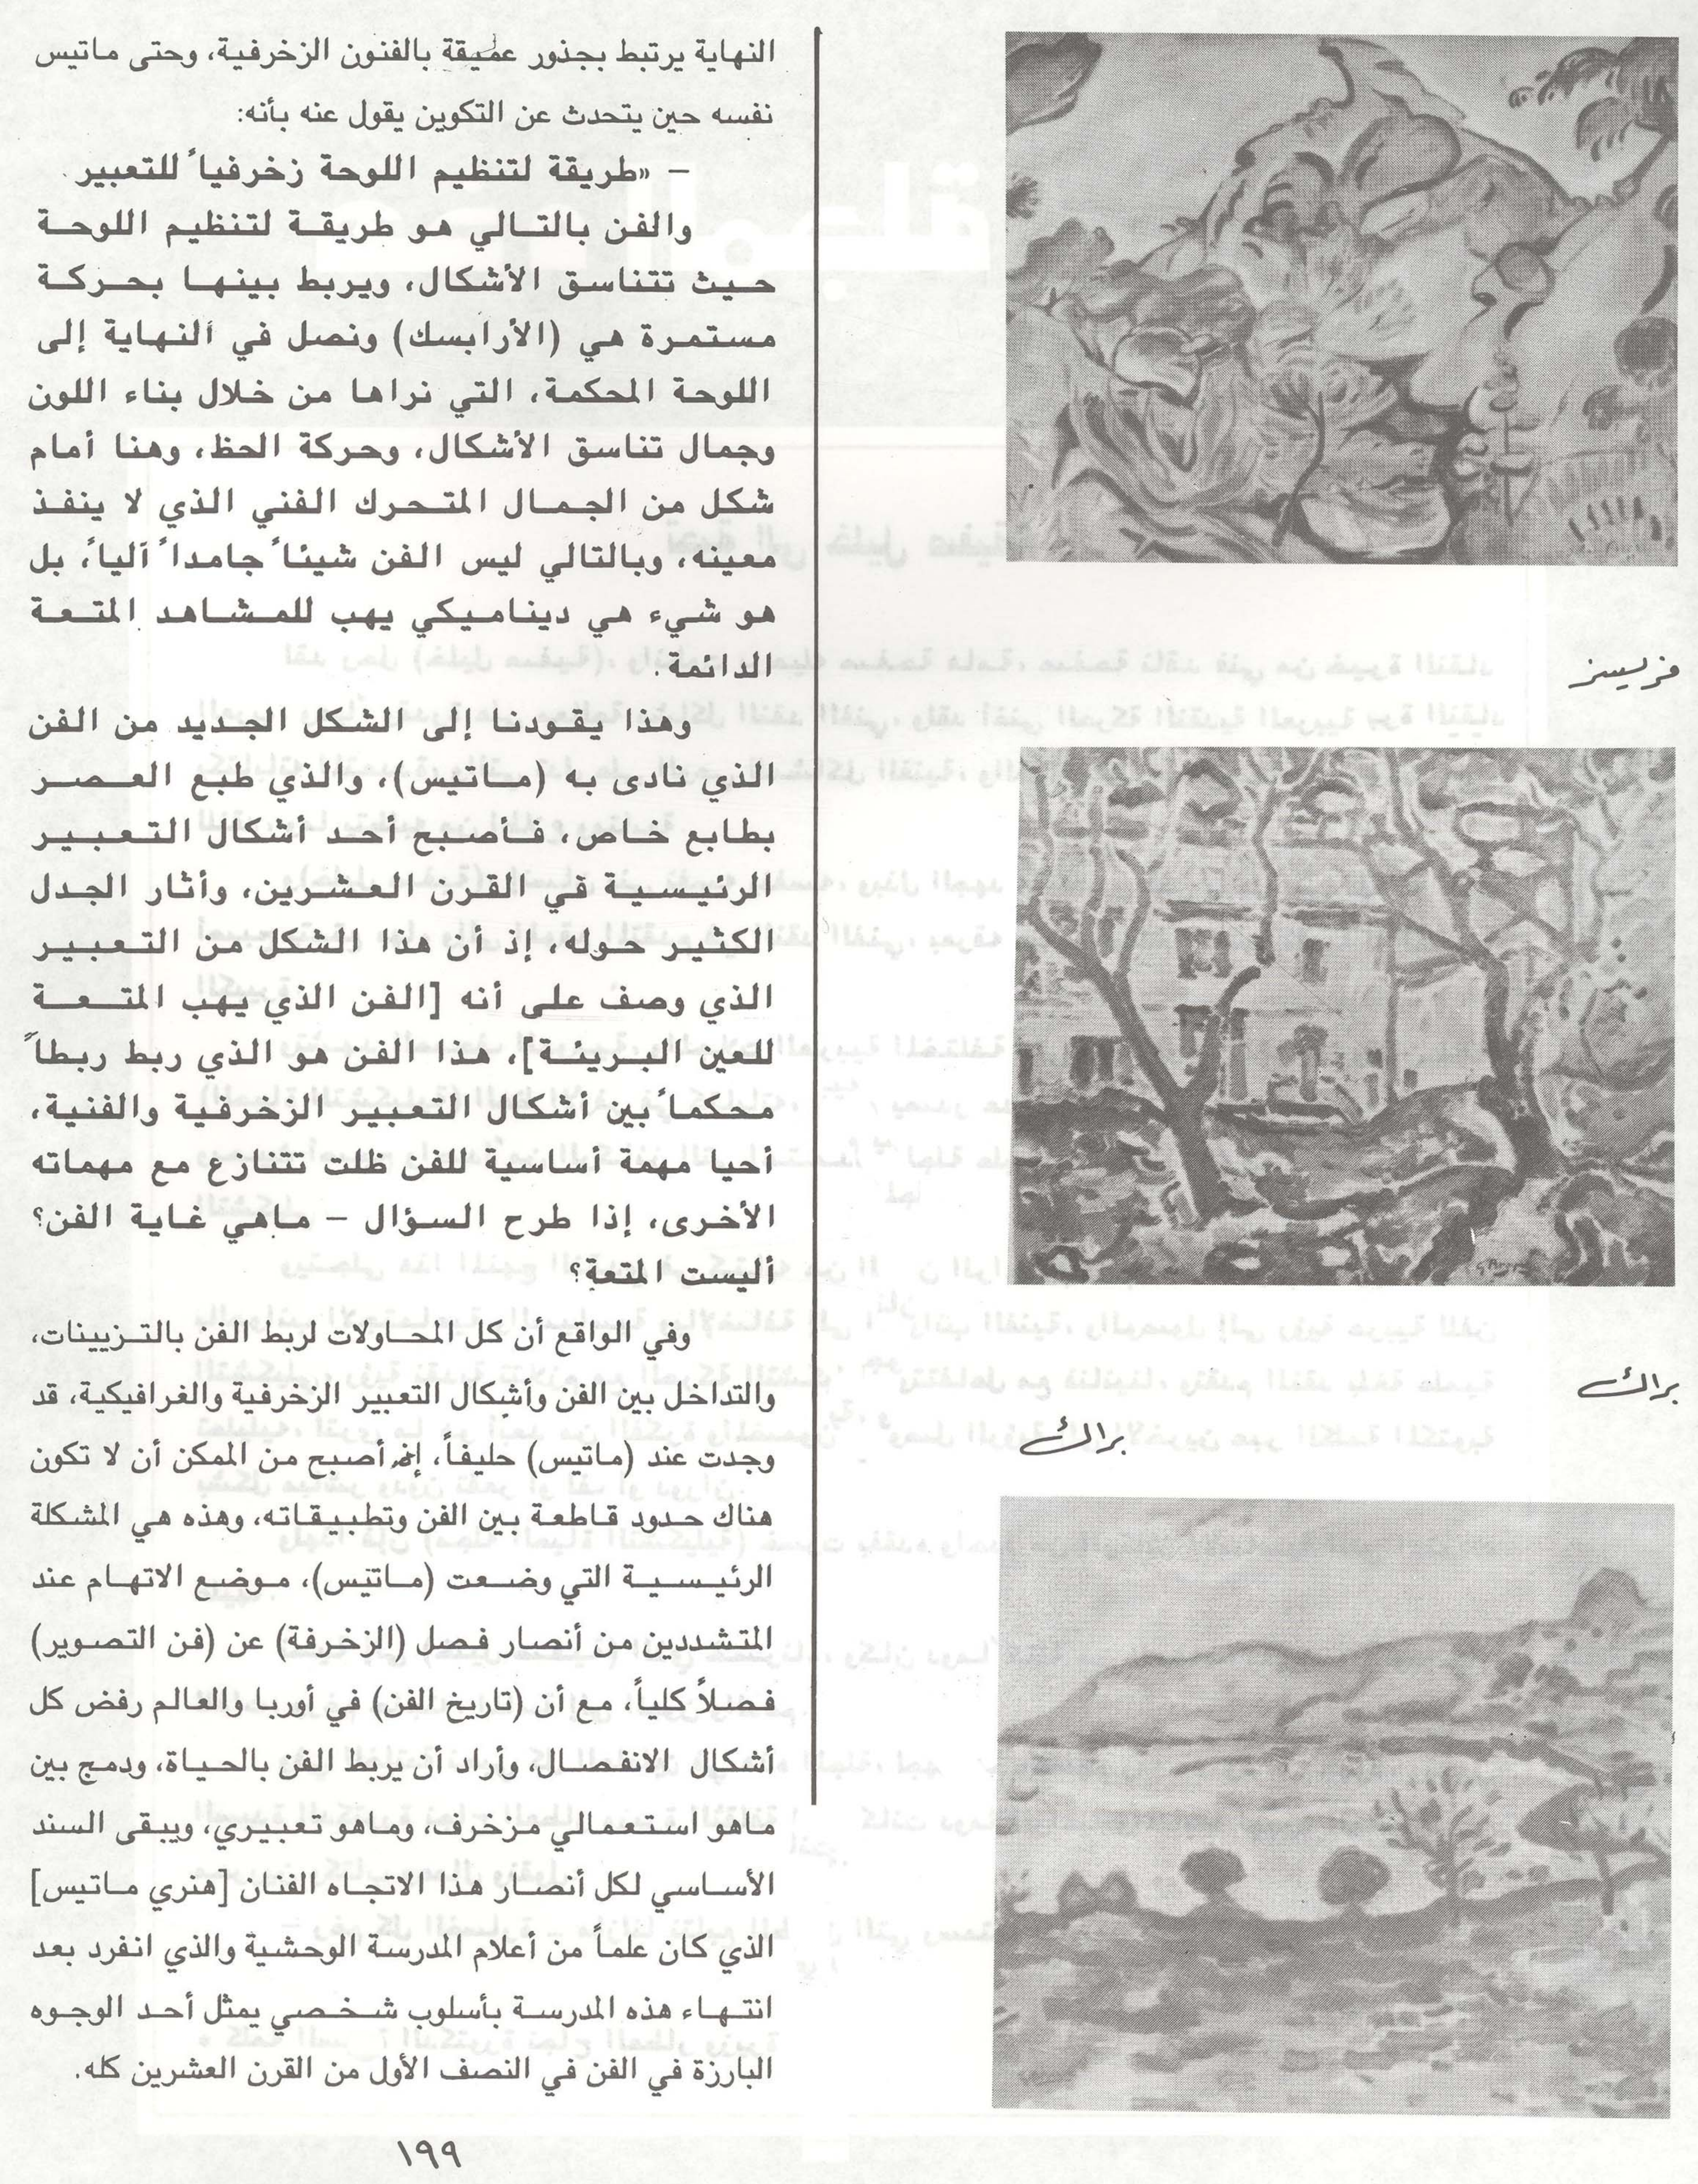 النهاية يرتبط بجذور عميقة بالفنون الزخرفية، وحتى ماتيس
نفسه حين يتحدث عن التكوين يقول عنه بأنه:
– «طريقة لتنظيم اللوحة زخرفياً للتعبير.
والفن بالتالي هو طريقة لتنظيم اللوحة
حيث تتناسق الأشكال، ويربط بينها بحركة
مستمرة هي (الأرابسك) ونصل في النهاية إلى
اللوحة المحكمة، التي نراها من خلال بناء اللون
وجمال تناسق الأشكال، وحركة الحظ، وهنا أمام
شكل من الجمال المتحرك الفني الذي لا ينفذ
معينه، وبالتالي ليس الفن شيئاً جامداً آلياً، بل
هو شيء هي ديناميكي يهب للمشاهد المتعة
الدائمة.
وهذا يقودنا إلى الشكل الجديد من الفن
الذي نادى به (ماتيس)، والذي طبع العصر
بطابع خاص، فأصبح أحد أشكال التعبير
الرئيسية في القرن العشرين، وأثار الجدل
الكثير حوله، إذ أن هذا الشكل من التعبير
الذي وصف على أنه [الفن الذي يهب المتعة
للعين البريئة]، هذا الفن هو الذي ربط ربطاً
محكماً بين أشكال التعبير الزخرفية والفنية،
أحيا مهمة أساسية للفن ظلت تتنازع مع مهماته
الأخرى، إذا طرح السؤال – ماهي غاية الفن؟
أليست المتعة؟
وفي الواقع أن كل المحاولات لربط الفن بالتزيينات،
والتداخل بين الفن وأشكال التعبير الزخرفية والغرافيكية، قد
وجدت عند (ماتيس) حليفاً، إذ أصبح من الممكن أن لا تكون
هناك حدود قاطعة بين الفن وتطبيقاته، وهذه هي المشكلة
الرئيسية التي وضعت (ماتيس)، موضع الاتهام عند
المتشددين من أنصار فصل (الزخرفة) عن (فن التصوير)
فصلاً كلياً، مع أن (تاريخ الفن) في أوربا والعالم رفض كل
أشكال الانفصال، وأراد أن يربط الفن بالحياة، ودمج بين
ماهو استعمالي مزخرف، وماهو تعبيري، ويبقى السند
الأساسي لكل أنصار هذا الاتجاه الفنان [هنري ماتيس]
الذي كان علماً من أعلام المدرسة الوحشية والذي انفرد بعد
انتهاء هذه المدرسة بأسلوب شخصي يمثل أحد الوجوه
البارزة في الفن في النصف الأول من القرن العشرين كله.
فريسز
براك
براك
١٩٩